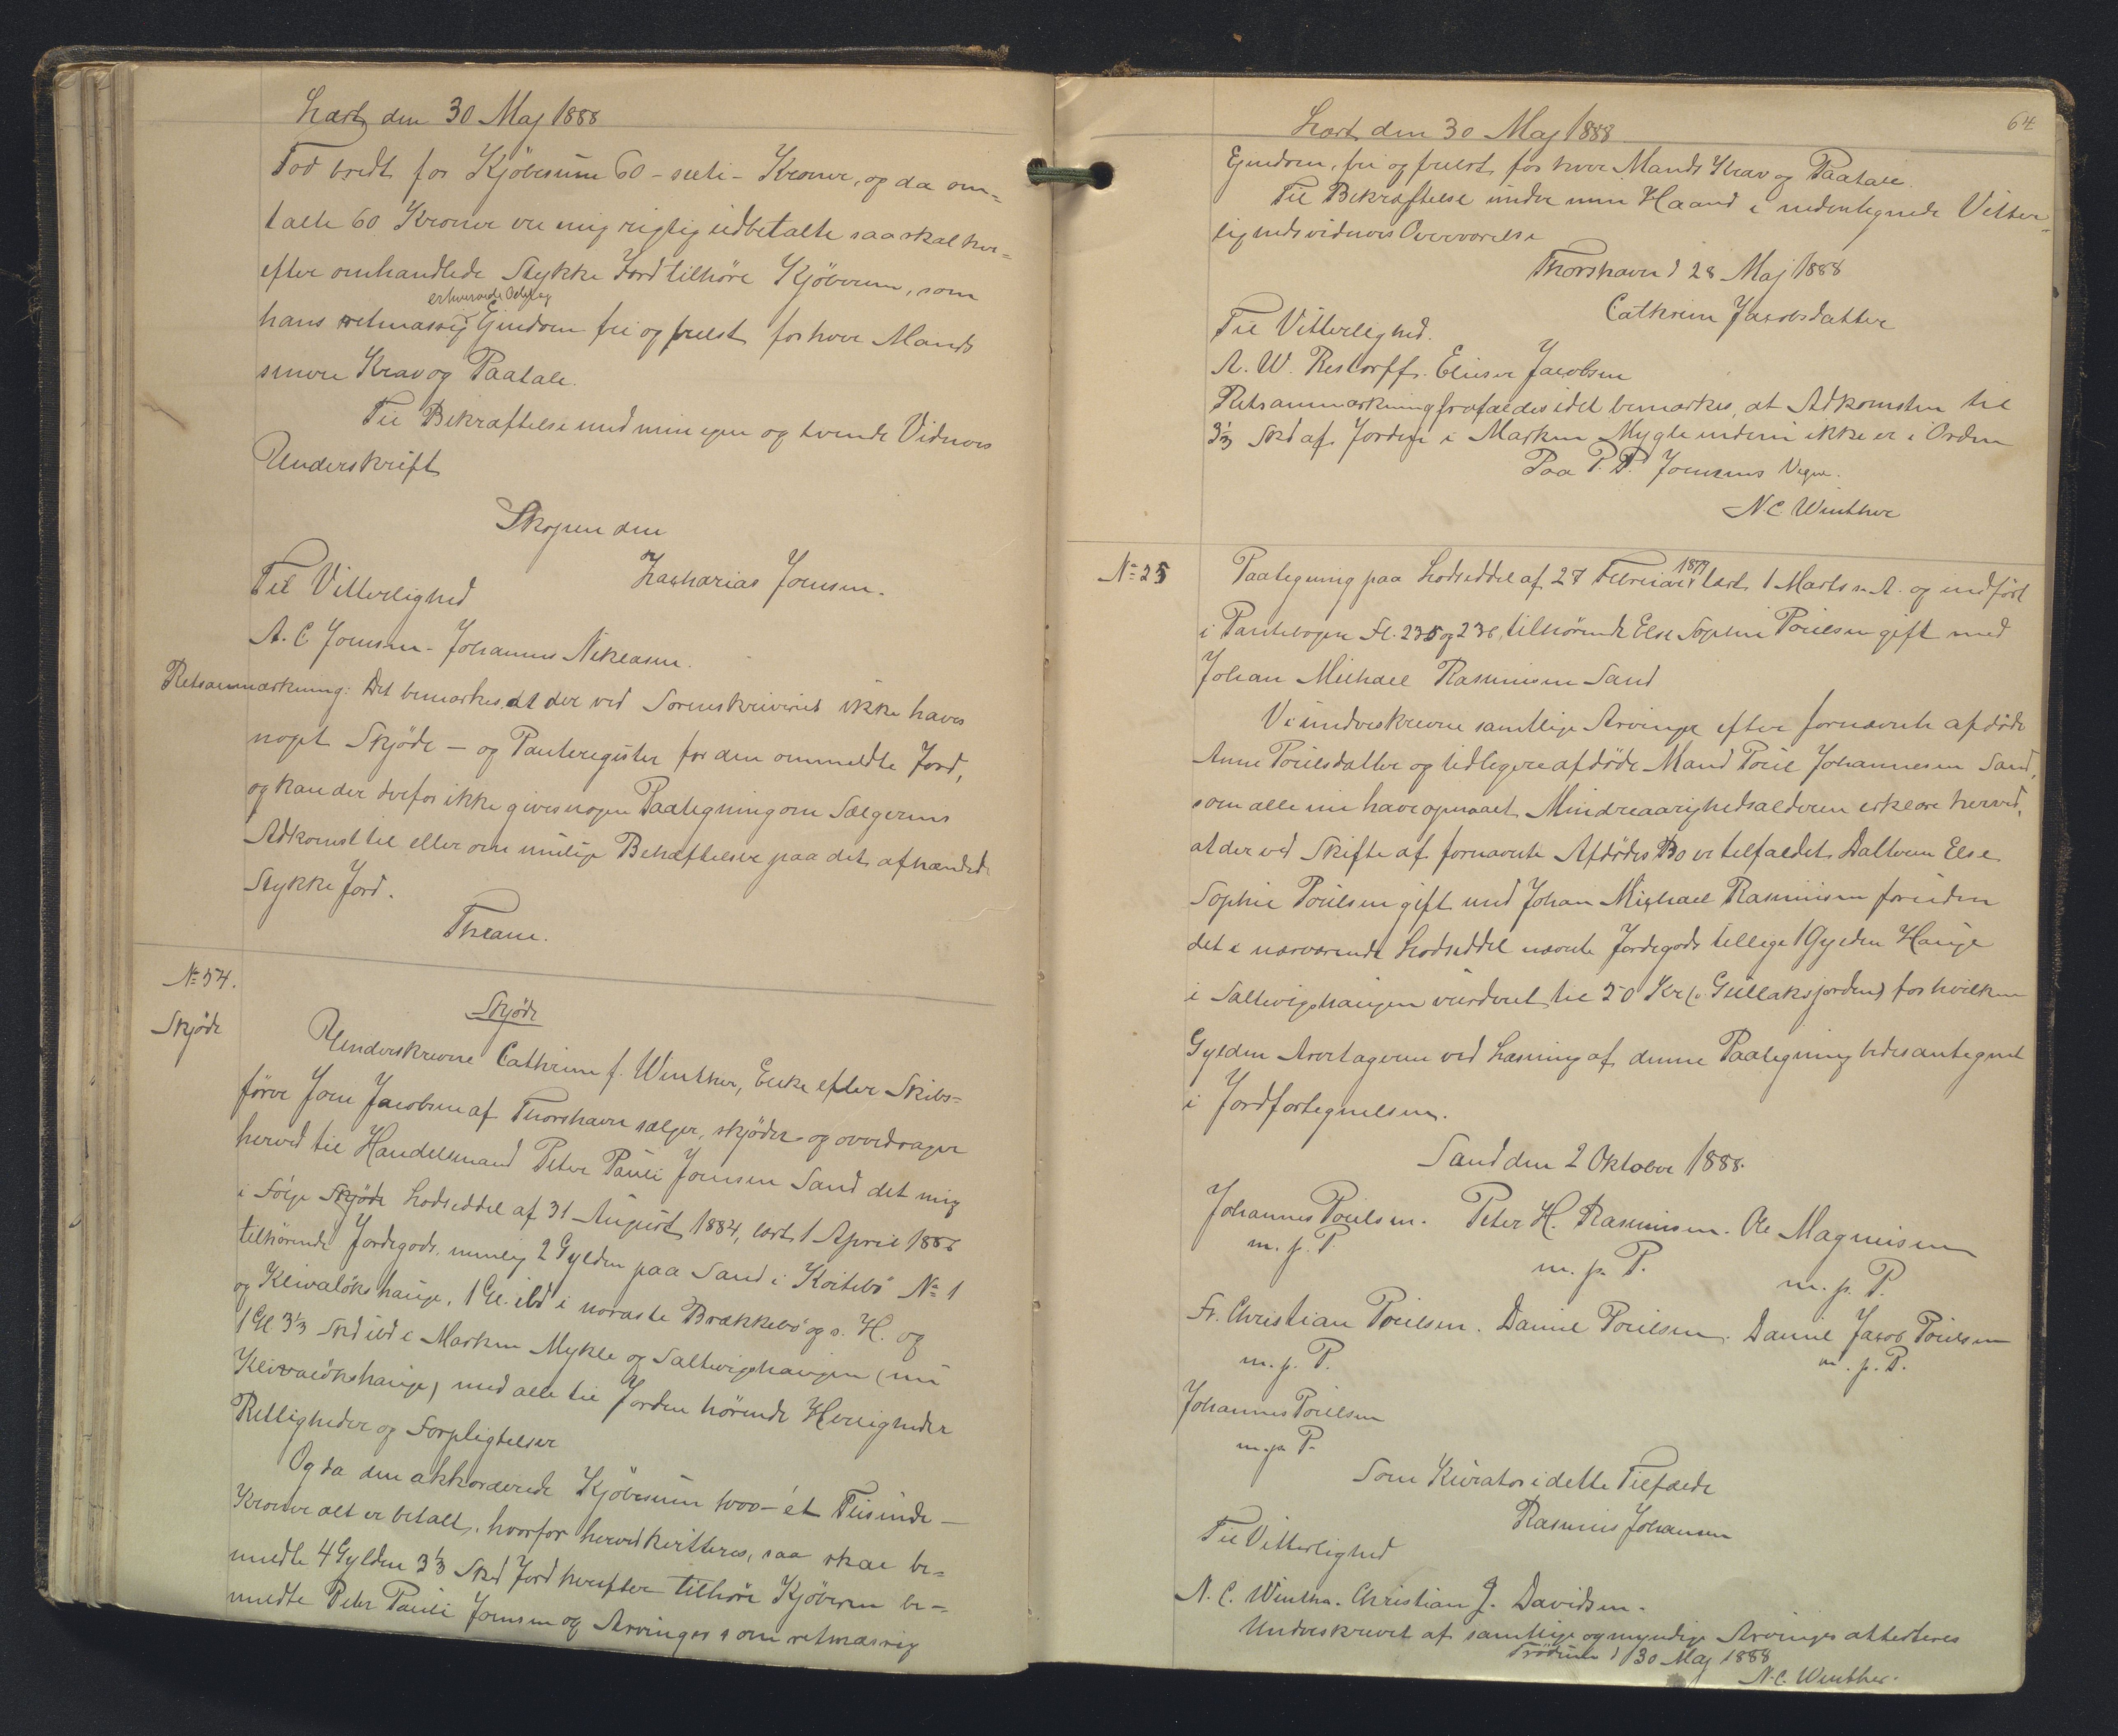 Læst den 30 Maj 1888
Fod bredt for Kjöbesum 60 - seeti - Kroner, og da om=
talte 60 Kroner ere mig rigtig udbetalte saa skal her=
efter omhandlede Stykke Jord tilhöre Kjöberen, som
erhvervede Odels og
hans retmæssig Ejendom fri og frelst for hver Mands
senere Krav og Paatale.
Til Bekræftelse med min egen og tvende Vidners
Underskrift
Skopen den
Zacharias Joensen.
Til Vitterlighed
A. C. Joensen - Johannes Niklasen.
Retsanmærkning: Det bemærkes, at der ved Sorenskriveriet ikke haves
noget Skjöde - og Panteregister for den ommeldte Jord,
og kan der derfor ikke gives nogen Paategning om Sælgerens
Adkomst til eller om mulige Behæftelser paa det afhændede
Stykke Jord.
Thrane.
№ 54.
Skjöde
Skjöde
Underskrevne Cathrine f. Winther, Enke efter Skibs=
förer Joen Jacobsen af Thorshavn sælger, skjöder og overdrager
herved til Handelsmand Peter Pauli Joensen Sand det mig
i Fölge Skjöde Lodseddel af 31 August 1884, læst 1 April 1886
tilhörende Jordegods, nemlig 2 Gylden paa Sand i Koitebö № 1
og Klivalöks hauge, 1 Gl. ibd i noraste Brekkebö og s. H. og
1 Gl. 3⅓ Skd ibd i Marken Mykle og Saltvigshaugen (nu
Klivalökshauge) med alle til Jorden hörende Herligheder
Rettigheder og Forpligtelser
Og da den akkorderede Kjöbesum 1000 - ét Tusinde -
Kroner alt er betalt, hvorfor herved kvitteres, saa skal be=
meldte 4 Gylden 3⅓ Skd Jord herefter tilhöre Kjöberen be=
meldte Peter Pauli Joensen og Arvinger som retmæssig
Læst den 30 Maj 1888
64
Ejendom, fri og frelst for hver Mands Krav og Paatale.
Til Bekræftelse under min Haand i nedentegnede Vitter=
lighedsvidners Overværelse
Thorshavn d 28 Maj 1888
Cathrine Jacobsdatter
Til Vitterlighed.
A. W. Restorff. Elieser Jacobsen
Retsanmærkning frafaldes idet bemærkes, at Adkomsten til
3⅓ Skd af Jorden i Marken Mygle indeni ikke er i Orden
Paa P. P. Joensens Vegne.
N C. Winther
№ 25
Paategning paa Lodseddel af 27 Februar 1877 læst 1 Marts s. A. og indfört
i Pantebogen Fl. 235 og 236, tilhörende Else Sophie Poulsen gift med
Johan Michael Rasmusen Sand
Vi underskrevne samtlige Arvinge efter fornævnte afdöde
Anne Poulsdatter og tidligere afdöde Mand Poul Johannesen Sand,
som alle nu have opnaaet Mindreaarighedsalderen erklære herved,
at der ved Skifte af fornævnte Afdödes Bo er tilfaldet Datteren Else
Sophie Poulsen gift med Johan Michael Rasmusen foruden
det i nærværende Lodseddel nævnte Jordegods tillige 1 Gylden Hauge
i Saltvigshaugen vurderet til 50 Kr (: Gullaksjorden) for hvilken
Gylden Arvetageren ved Læsning af denne Paategning bedes antegnet
i Jordfortegnelsen.
Sand den 2 Oktober 1888.
Johannes Poulsen. Peter H. Rasmusen. Ole Magnusen
m. p. P. m. p. P. m. p. P.
Fr. Christian Poulsen. Daniel Poulsen. Daniel Jacob Poulsen
m. p. P. m. p. P.
Johannes Poulsen
m. p. P.
Som Kurator i dette Tilfælde
Rasmus Johansen
Til Vitterlighed
N. C. Winther. Christian J. Davidsen.
Underskrevet af samtlige og myndige Arvinger attesteres
Tródum d 30 Maj 1888
N. C. Winther.